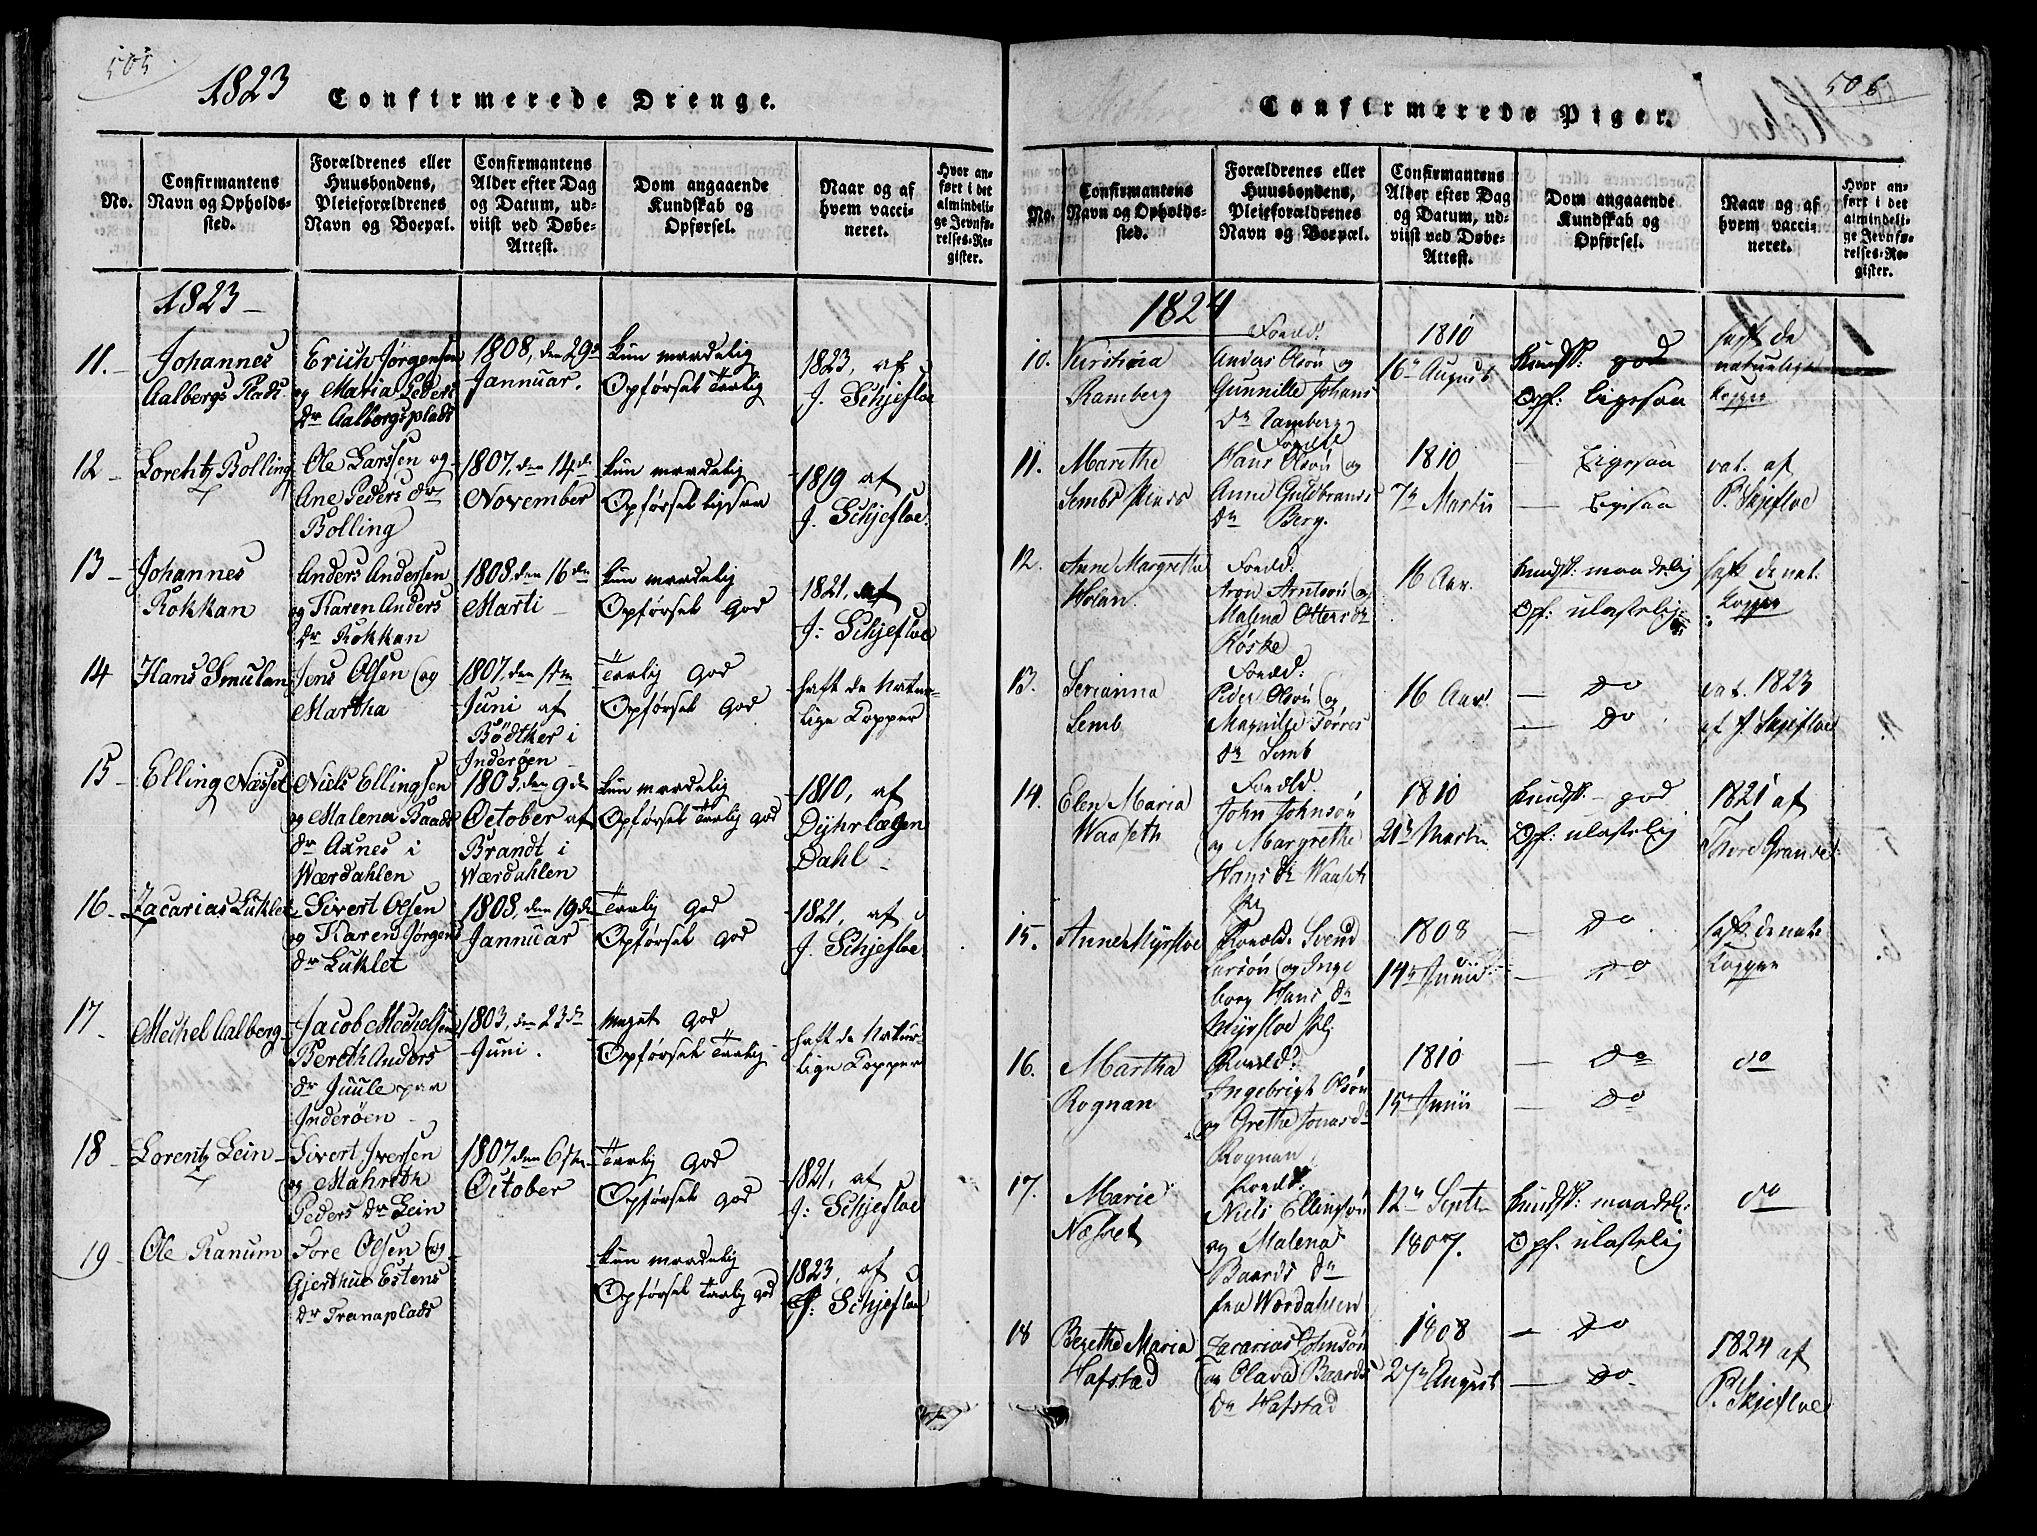 505
1823
Confirmerede Drenge.
No.
Confirmantens
Navn og Opholds-
sted.
Forældrenes eller
Huusbondens,
Pleieforældrenes
Navn og Boepæl.
Confirmantens
Alder efter Dag
og Datum, ud-
viist ved Døbe-
Attest.
Dom angaaende
Kundskab og
Opførsel.
Naar og af
hvem vacci-
neret.
Hvor an-
ført i det
almindeli-
ge Jevnfø-
relses-Re-
gister.
1823
11.
Johannes
Aalbergs Plads
Erich Jørgensen
og Maria Peders
dr Aalbergsplads
1808, den 29de
Jannuar.
kun maadelig
Opførsel Tarlig
1823, af
J. Schjefloe
12
Lorentz Bolling
Ole Larssen og
Ane Peders dr
Bolling
1807, den 14de
November
kun maadelig
Opførsel ligesaa
1819 af
J. Schjefloe.
13
Johannes
Rokkan
Anders Andersen
og Karen Anders
dr Rokkan
1808, den 16de
Marti
kun maadelig
Opførsel God
1821, af
J: Schjefloe
14
Hans Smulan
Jens Olsen og
Martha
1807, den 1ste
Juni af
Bödtker i
Inderøen
Tarlig God
Opførsel God
haft de Natur-
lige Kopper
15
Elling Næsset
Niels Ellingsen
og Malena Baards
dr Axnes i
Wærdahlen
1805, den 9de
October af
Brandt i
Wærdahlen
kun maadelig
Opførsel Tarlig God
1810, af
Dyhrlægen
Dahl
16
Zacarias Luklet
Sivert Olsen
og Karen Jørgens
dr Luklet
1808, den 19de
Jannuar
Tarlig God
Opførsel God
1821, af
J. Schjefloe
17
Mechel Aalberg
Jacob Mechelsen
Bereth Anders
dr Juule paa
Inderöen
1803, den 23de
Juni.
Meget God
Opførsel Tarlig
haft de Natur-
lige Kopper
18
Lorentz Lein
Sivert Iversen
og Mahreth
Peders dr Lein
1807 den 6ste
October
Tarlig God
Opførsel God
1821, af
J: Schjefloe
19
Ole Ranum
Tore Olsen og
Gjerthue Estens
dr Tranaplads
kun maadelig
Opførsel Tarlig God
1823, af
J: Schjefloe
506
Confirmerede Piger.
No.
Confirmantens
Navn og Opholds-
sted.
Forældrenes eller
Huusbondens,
Pleieforældrenes
Navn og Boepæl.
Confirmantens
Alder efter Dag
og Datum, ud-
viist ved Døbe-
Attest.
Dom angaaende
Kundskab og
Opførsel.
Naar og af
hvem vacci-
neret.
Hvor an-
ført i det
almindeli-
ge Jevnfø-
relses-Re-
gister.
1824
10.
Kirstina
Ramberg
Foreld:
Andas Olsön og
Gunnille Johans
dr Ramberg
1810
16de August
Kundsk: god
Opf: ligesaa
haft de
naturlige
Kopper
11.
Marethe
Sembs
Foreld
Hans Olsön og
Anne Guldbrands
dr Berg.
1810
7de Martii
— Ligesaa
— Ligesaa
vac. af
P. Skjefloe
12.
Anne Margrethe
Holan
Foreld:
Aron Arntsön og
Malena Otters dr
Røske
16 Aar.
Kundsk: maadelig
Opf: ulastelig
haft de nat.
Kopper
13.
Serianna
Semb
Foreld:
Peder Olsön og
Magnille Torres
dr Semb
16 Aar
— do
— do
vac. 1823
af J. Skjefloe
14.
Elen Maria
Waaseth
Foreld.
John Johnsön
og Margrethe
Hans dr Waaseth
1810
21de Martii
Kundsk: god
Opf: ulastelig
1821 af
Thore Grande
15.
Anne Myrsloe
Foreld. Svend
Larsön og Inge
borg Hans dr
Myrsloe
1808
14de Junii
— do
— do
haft de nat.
Kopper
16.
Martha
Rognan
Foreld:
Ingebrigt Olsön
og Grethe Jonas dr
Rognan
1810
15de Junii
— do
— do
do
17.
Marie
Næsset
Foreld:
Niels Ellingsön
og Malena
Baards dr
fra Wærdahlen
12te Septbr
1807.
Kundsk: maadel:
Opf: ulastelig
do
18
Berethe Maria
Hafstad
Zacarias Johnsön
og Olava Baards
dr Hafstad
1808
27de August
— do
— do
1824 af
P. Skjefloe